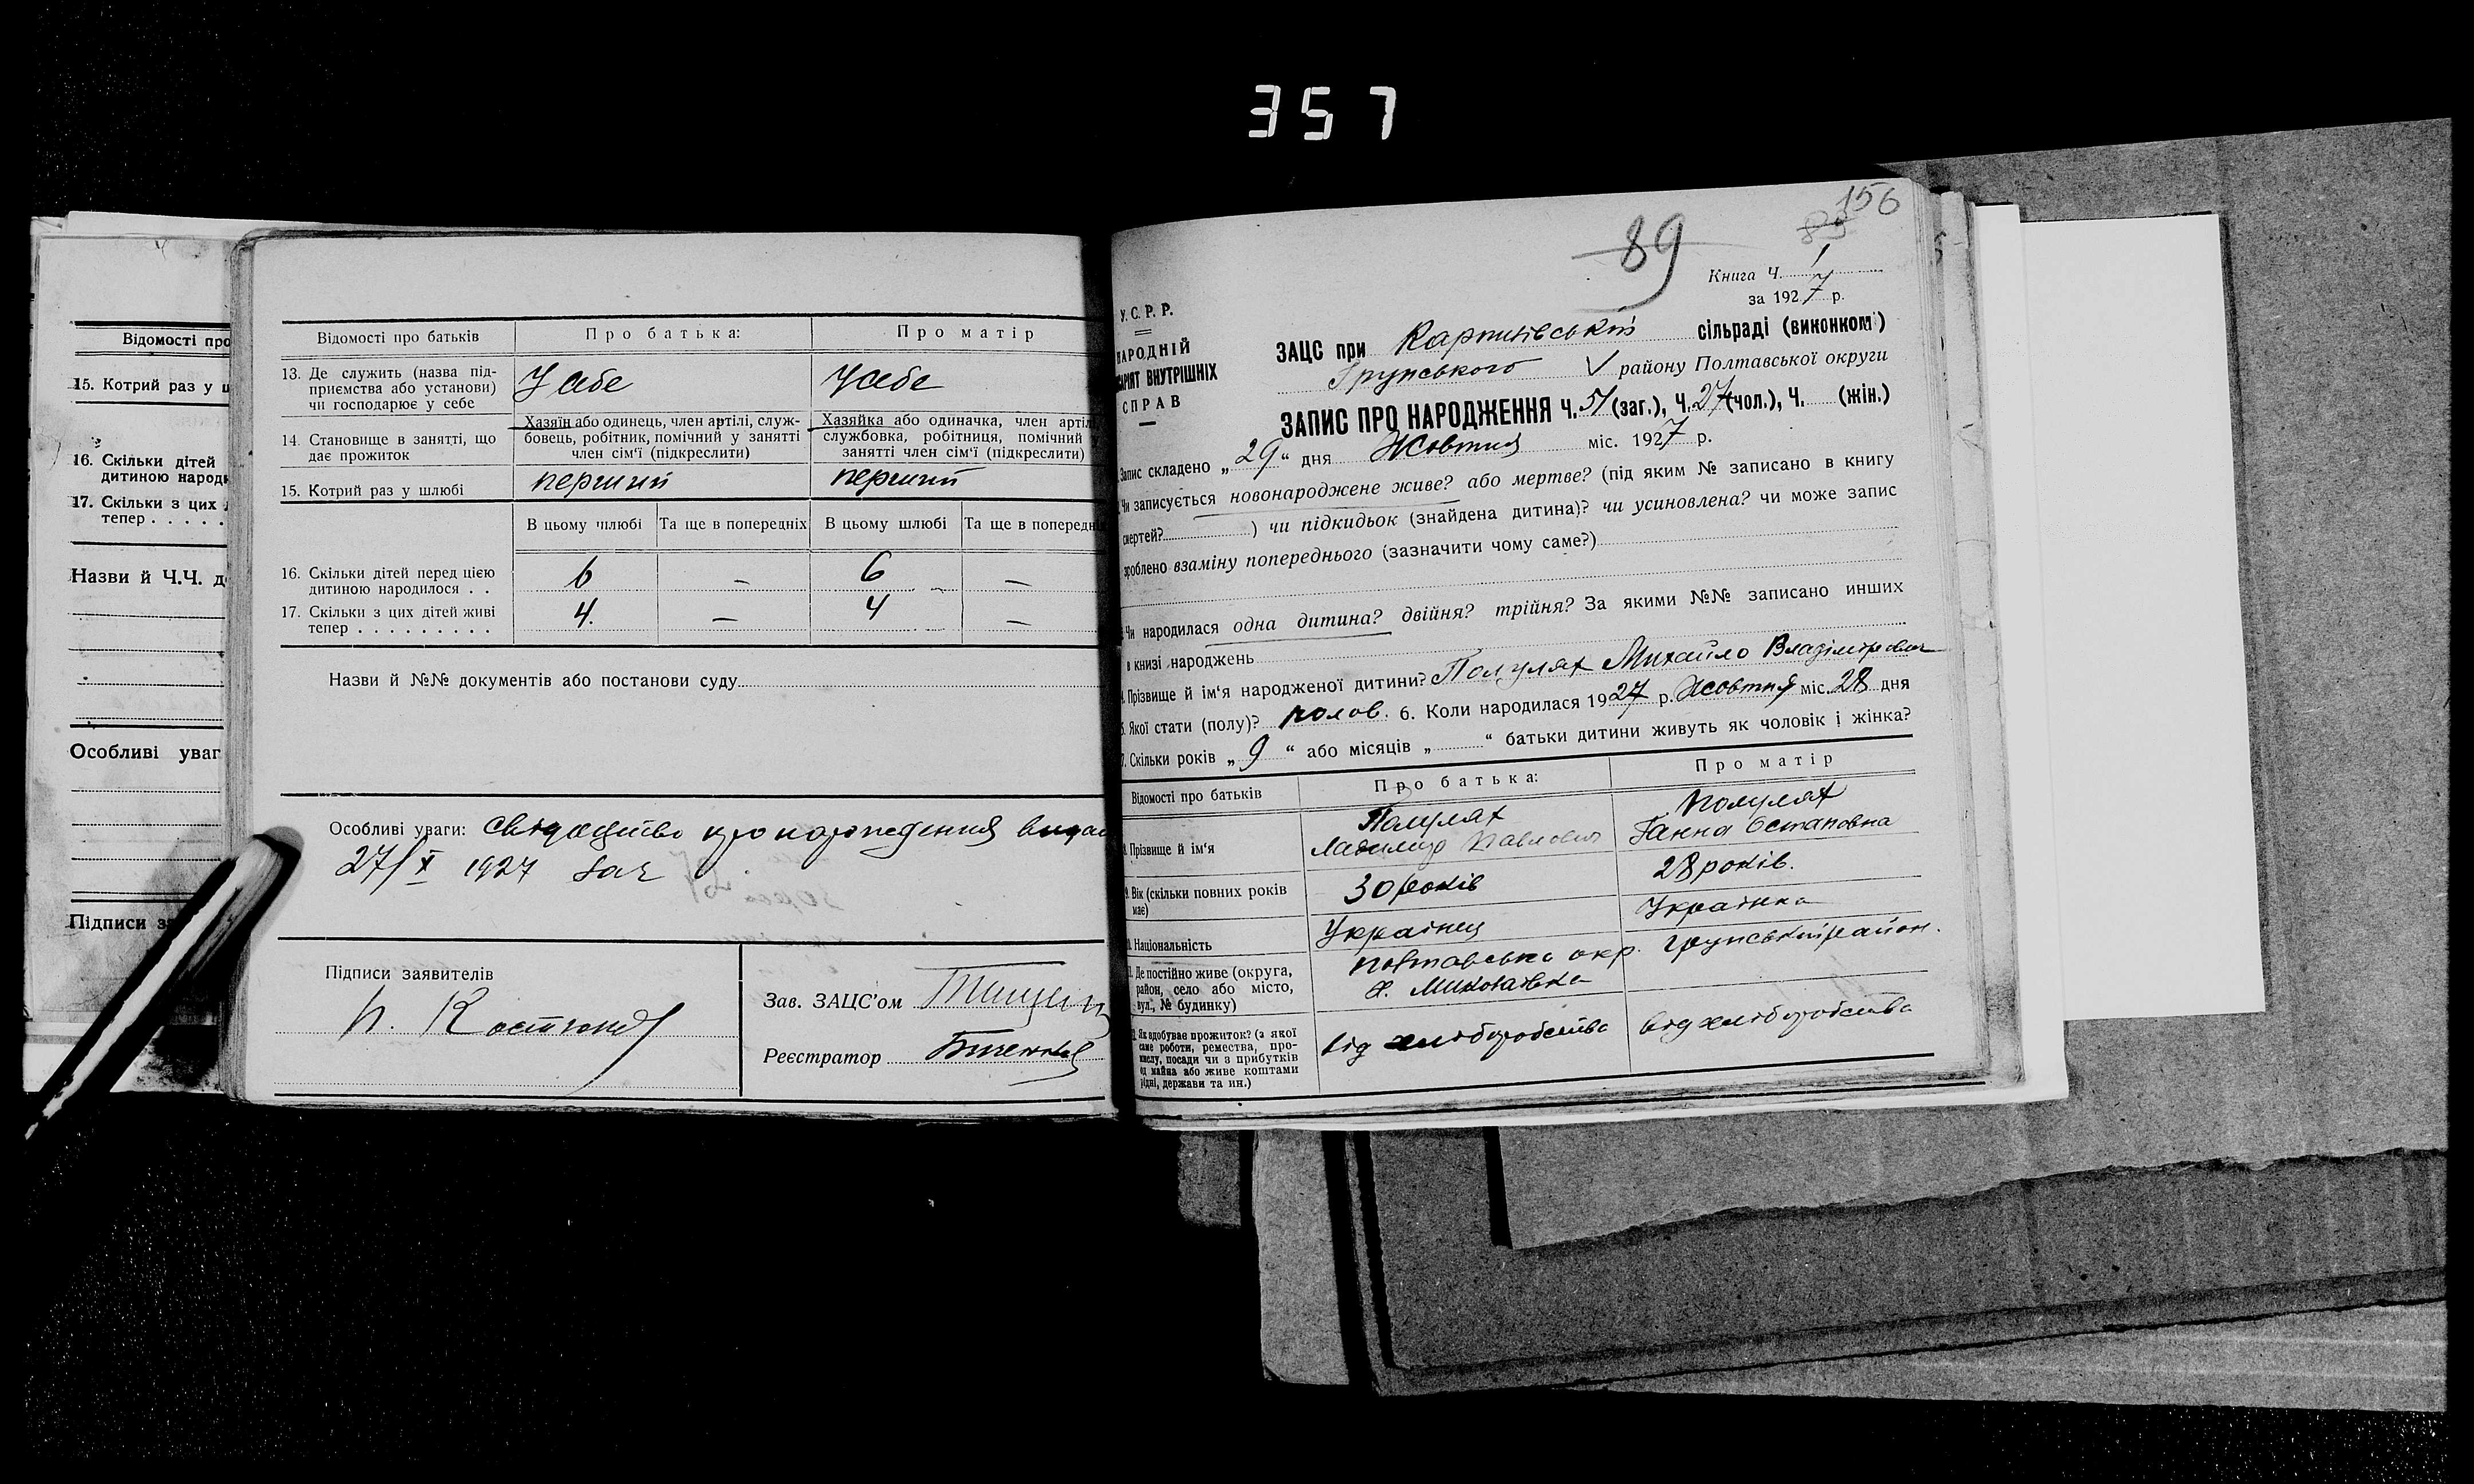 357
Відомості про
15. Котрий раз у ш
16. Скільки дітей
дитиною народи
17. Скільки з цих
тепер . . . . .
Назви й Ч.Ч. д
Особливі уваг
Підписи за
Відомості про батьків
Про батька:
Про матір
13. Де служить (назва під-
приємства або установи)
чи господарює у себе
У себе
У себе
14. Становище в занятті, що
дає прожиток
Хазяїн або одинець, член артілі, служ-
бовець, робітник, помічний у занятті
член сім'ї (підкреслити)
Хазяйка або одиначка, член артіл
службовка, робітниця, помічний у
занятті член сім'ї (підкреслити)
15. Котрий раз у шлюбі
перший
перший
В цьому шлюбі
Та ще в попередніх
В цьому шлюбі
Та ще в попередні
16. Скільки дітей перед цією
дитиною народилося . .
6 — 6 —
17. Скільки з цих дітей живі
тепер . . . . . . . . .
4. — 4 —
Назви й №№ документів або постанови суду
Особливі уваги:
27/X 1927
Підписи заявителів
Зав. ЗАЦС'ом
Реєстратор
156
89
Книга Ч. 1
за 1927 р.
У.С.Р.Р.
НАРОДНІЙ
АРІЯТ ВНУТРІШНІХ
СПРАВ
ЗАЦС при сільраді (виконком)
Грунського V району Полтавської округи
ЗАПИС ПРО НАРОДЖЕННЯ Ч. 51 (заг.), Ч. 27 (чол.), Ч. (жін.)
Запис складено „29“ дня Жовтня міс. 1927 р.
Чи записується новонароджене живе? або мертве? (під яким № записано в книгу
смертей? ) чи підкидьок (знайдена дитина)? чи усиновлена? чи може запис
зроблено взаміну попереднього (зазначити чому саме?)
Чи народилася одна дитина? двійня? трійня? За якими №№ записано инших
в книзі народжень
4. Прізвище й ім'я народженої дитини? Полулях Михайло
5. Якої стати (полу)? 6. Коли народилася 1927 р. Жовтня міс. 28 дня
7. Скільки років „9“ або місяців „ “ батьки дитини живуть як чоловік і жінка?
Відомості про батьків
Про батька:
Про матір
Прізвище й ім'я
Полулях
Павлович
Полулях
Ганна Остаповна
9. Вік (скільки повних років
має)
30 років
28 років.
Національність
Українец
Українка
Де постійно живе (округа,
район, село або місто,
вул., № будинку)
Полтавська окр. Грунський район.
х.
Як здобуває прожиток? (з якої
саме роботи, ремества, про-
мислу, посади чи з прибутків
од майна або живе коштами
рідні, держави та ин.)
від хліборобства
від хліборобства